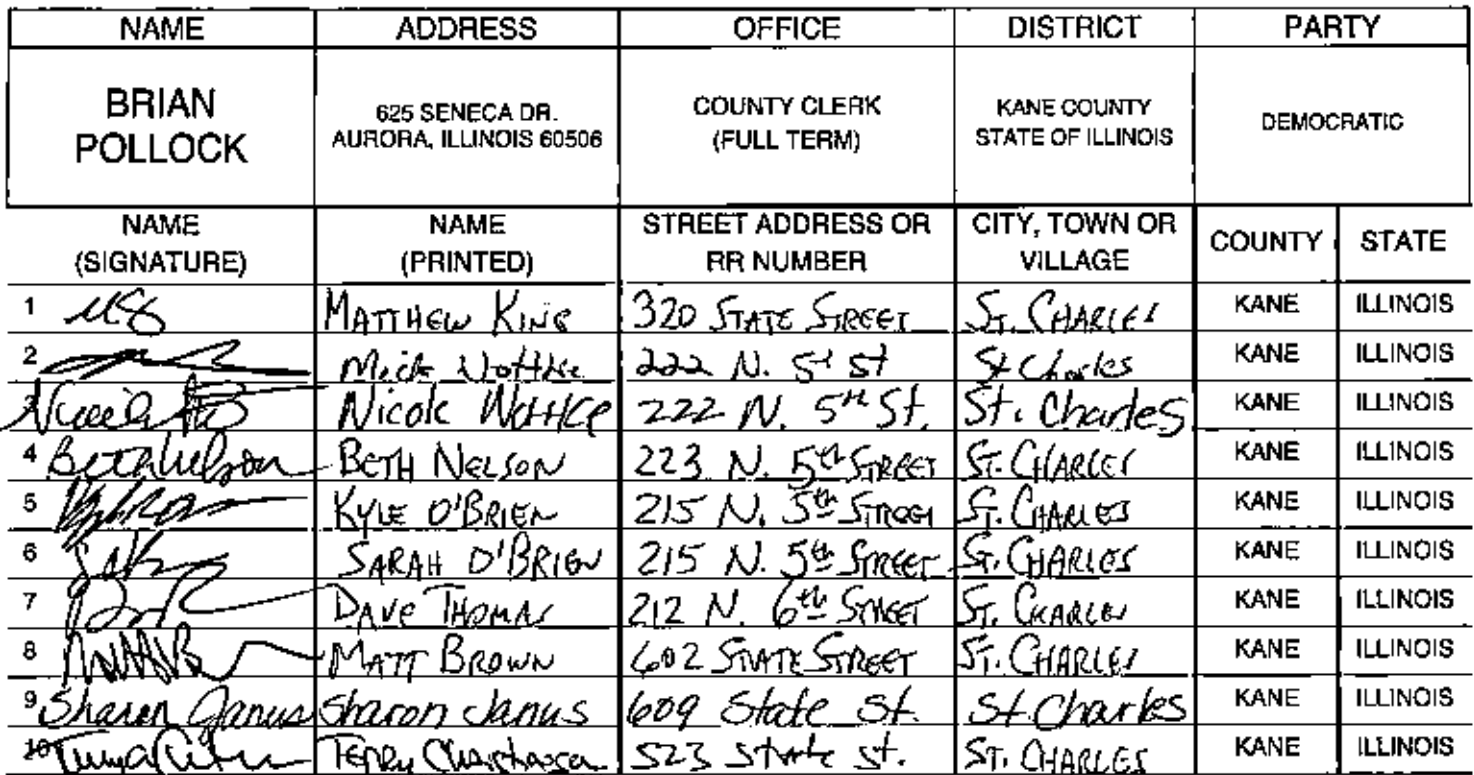 NAME ADDRESS OFFICE DISTRICT PARTY
BRIAN POLLOCK 625 SENECA DR. AURORA, ILLINOIS 60506 COUNTY CLERK (FULL TERM) KANE COUNTY STATE OF ILLINOIS DEMOCRATIC
NAME (SIGNATURE) NAME (PRINTED) STREET ADDRESS OR RR NUMBER CITY, TOWN OR VILLAGE COUNTY STATE
1 MATTHEW KING 320 STATE STREET ST. CHARLES KANE ILLINOIS
2 222 N. 5 St St Charles KANE ILLINOIS
3 Nicole 222 N. 5th St. St. Charles KANE ILLINOIS
4 Beth Nelson BETH NELSON 223 N. 5th STREET ST. CHARLES KANE ILLINOIS
5 KYLE O'BRIEN 215 N. 5th STREET ST. CHARLES KANE ILLINOIS
6 SARAH O'BRIEN 215 N. 5th STREET ST. CHARLES KANE ILLINOIS
7 DAVE THOMAS 212 N. 6th STREET ST. CHARLES KANE ILLINOIS
8 MATT BROWN 602 STATE STREET ST. CHARLES KANE ILLINOIS
9 Sharon Janus Sharon Janus 609 State St. St. Charles KANE ILLINOIS
10 523 State St. ST. CHARLES KANE ILLINOIS